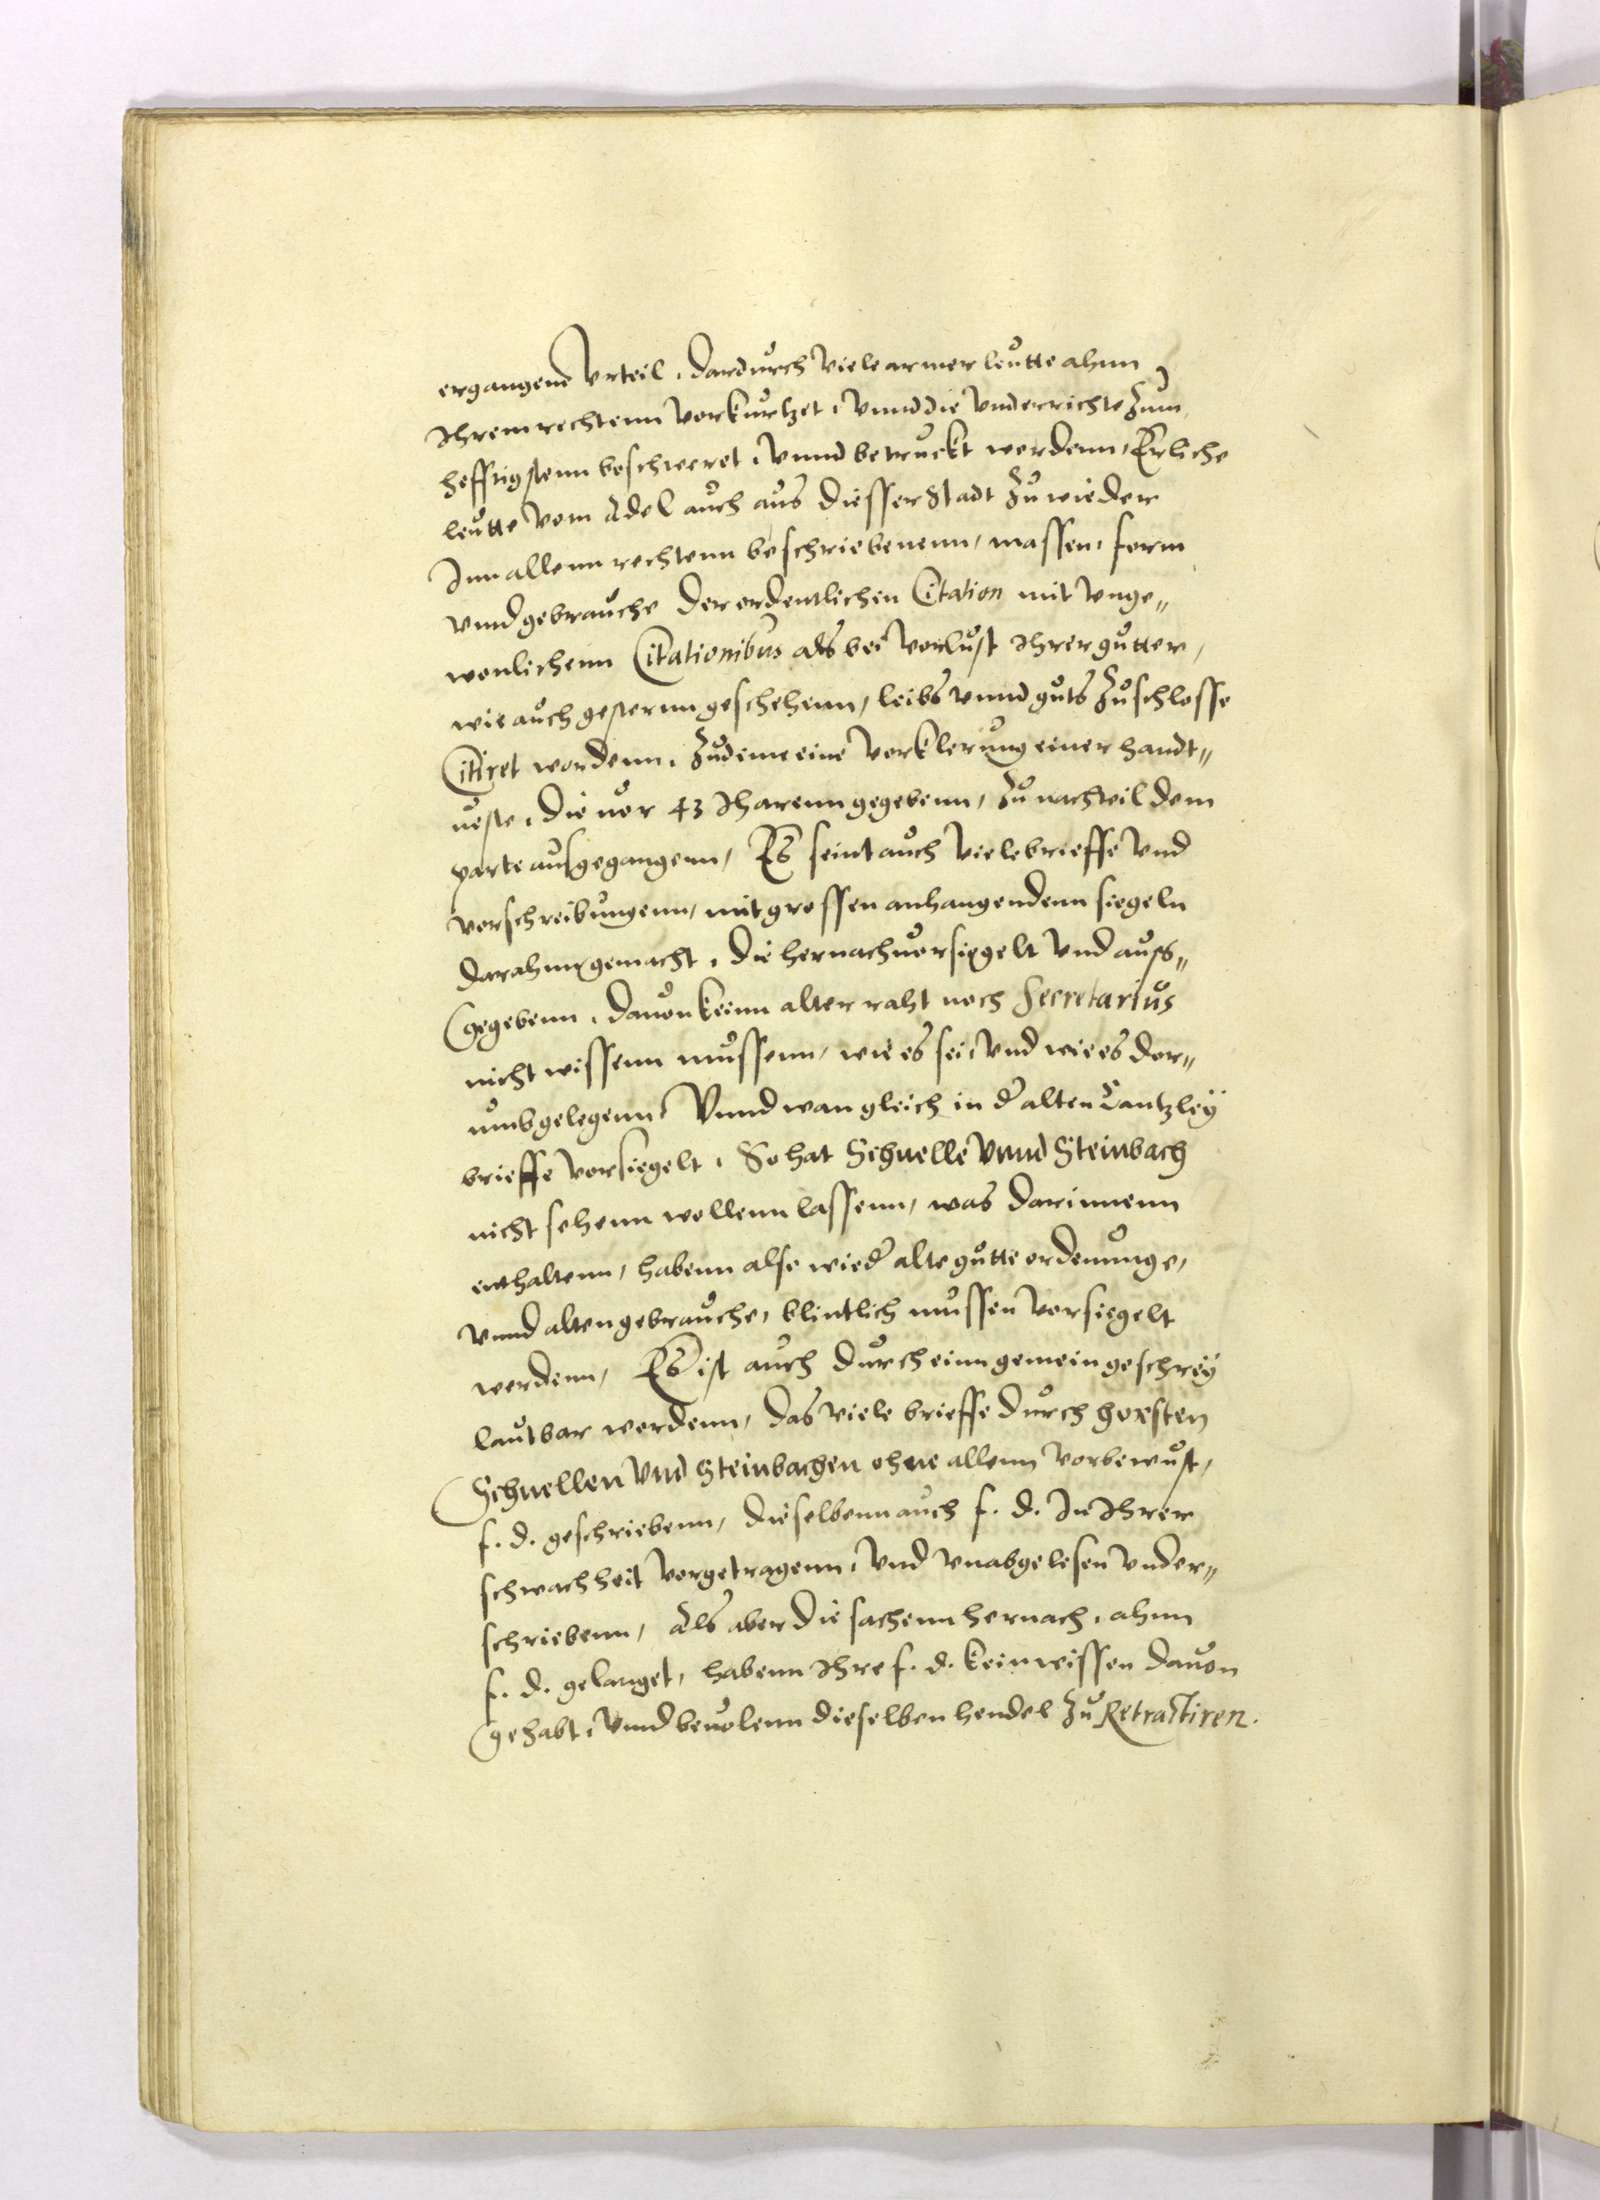 ergangene Vrteil, dardurch viele armer leutte ahnn
Ihrem rechtenn vorkurtzet, vnnd die vnderrichte zum
hefftigstenn beschweret, vnnd betruckt werdenn, Erliche
leutte vom Adel auch aus diesser Stadt zu wieder
Inn allenn rechtenn beschriebenenn, massen, form
vnnd gebrauche der ordentlichen Citation mit vnge„
wonlichenn Citationibus als bei vorlust Ihrer gutter,
wie auch gesternn geschehenn, leibs vnnd guts zu schlosse
Citiret wordenn, zudeme eine vorklerung einer handt„
ueste, die uor 43 Iharenn gegebenn, zu nachteil dem
parte ausgegangenn, Es seint auch viele brieffe vnd
vorschreibungenn, mit grossen anhangendenn siegeln
darahnn gemacht, die hernach uorsiegelt vnd auss„
gegebenn, dauon keinn alter raht noch Secretarius
nicht wissenn mussenn, wie es sei, vnd wie es dor„
umb gelegenn, Vnnd wan gleich in d' alten Cantzley
brieffe vorsiegelt, So hat Schnelle vnnd Steinbach
nicht sehenn wollenn lassenn, was darinnenn
enthaltenn, habenn also wied' alte gutte ordenunge,
vnnd alten gebrauche, blintlich mussen vorsiegelt
werdenn, Es ist auch durch einn gemein geschrey
lautbar wordenn, das viele brieffe durch horsten
Schnellen vnd Steinbachen ohne allenn vorbewust,
f. d. geschriebenn, dieselbenn auch f. d. In Ihrer
schwachheit vorgetragenn, vnd vnabgelesen vnder„
schriebenn, Als aber die sachenn hernach, ahnn
f. d. gelanget, habenn Ihre f. d. kein wissen dauon
gehabt, vnnd beuolenn dieselben hendel zu Retractiren.